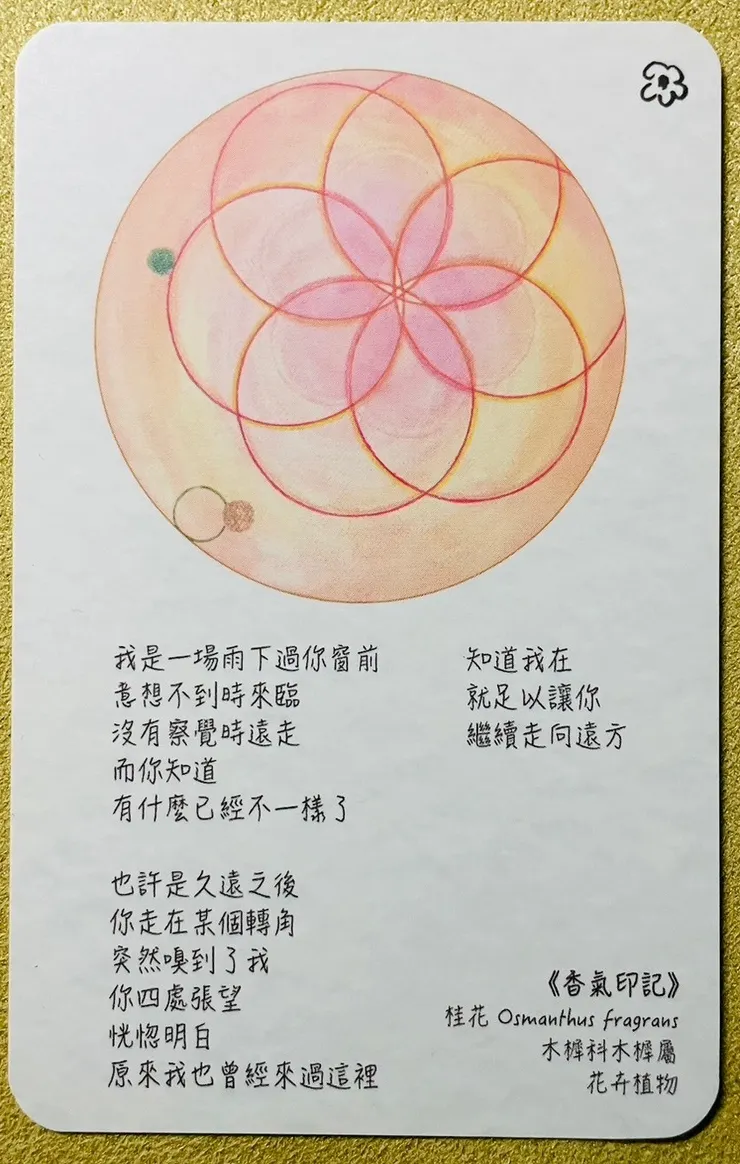 我是一場雨下過你窗前
意想不到時來臨
沒有察覺時遠走
而你知道
有什麼已經不一樣了
也許是久遠之後
你走在某個轉角
突然嗅到了我
你四處張望
恍惚明白
原來我也曾經來過這裡
知道我在
就足以讓你
繼續走向遠方
《香氣印記》
桂花 Osmanthus fragrans
木樨科木樨屬
花卉植物